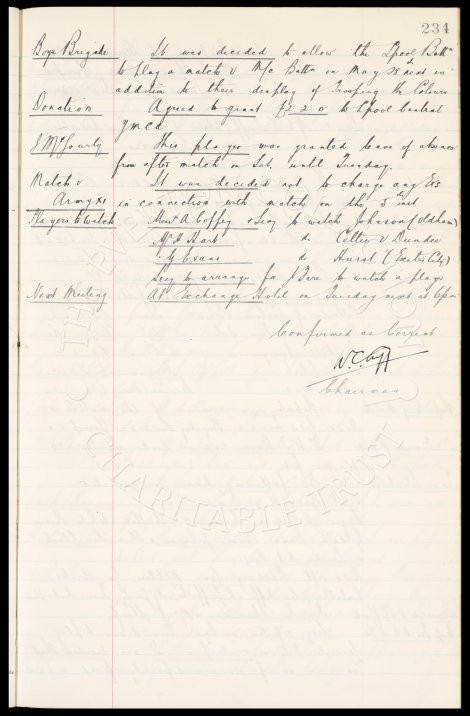 234
Boys Brigade It was decided to allow the Lpool Battn
to play a match v M/c Battn on May next in
addition to their display of Trooping the Colours
Donation Agreed to grant £2 2 0 to Lpool Central
Y M C A
J McGourty This player was granted leave of absence
from after match on Sat. until Tuesday.
Match v It was decided not to charge any
Army XI in connection with match on the 3rd inst
Players to watch Messrs A Coffey & Secy to watch Johnson (Oldham)
Mr H Hart do. Celtic v Dundee
" Evans do Hurst (Exeter City)
Secy to arrange for J Fare to watch a player
Next Meeting At Exchange Hotel on Tuesday next at 6pm
Confirmed as Correct
W.C. Cuff
Chairman
THE EVE
CHARITABLE TRUST